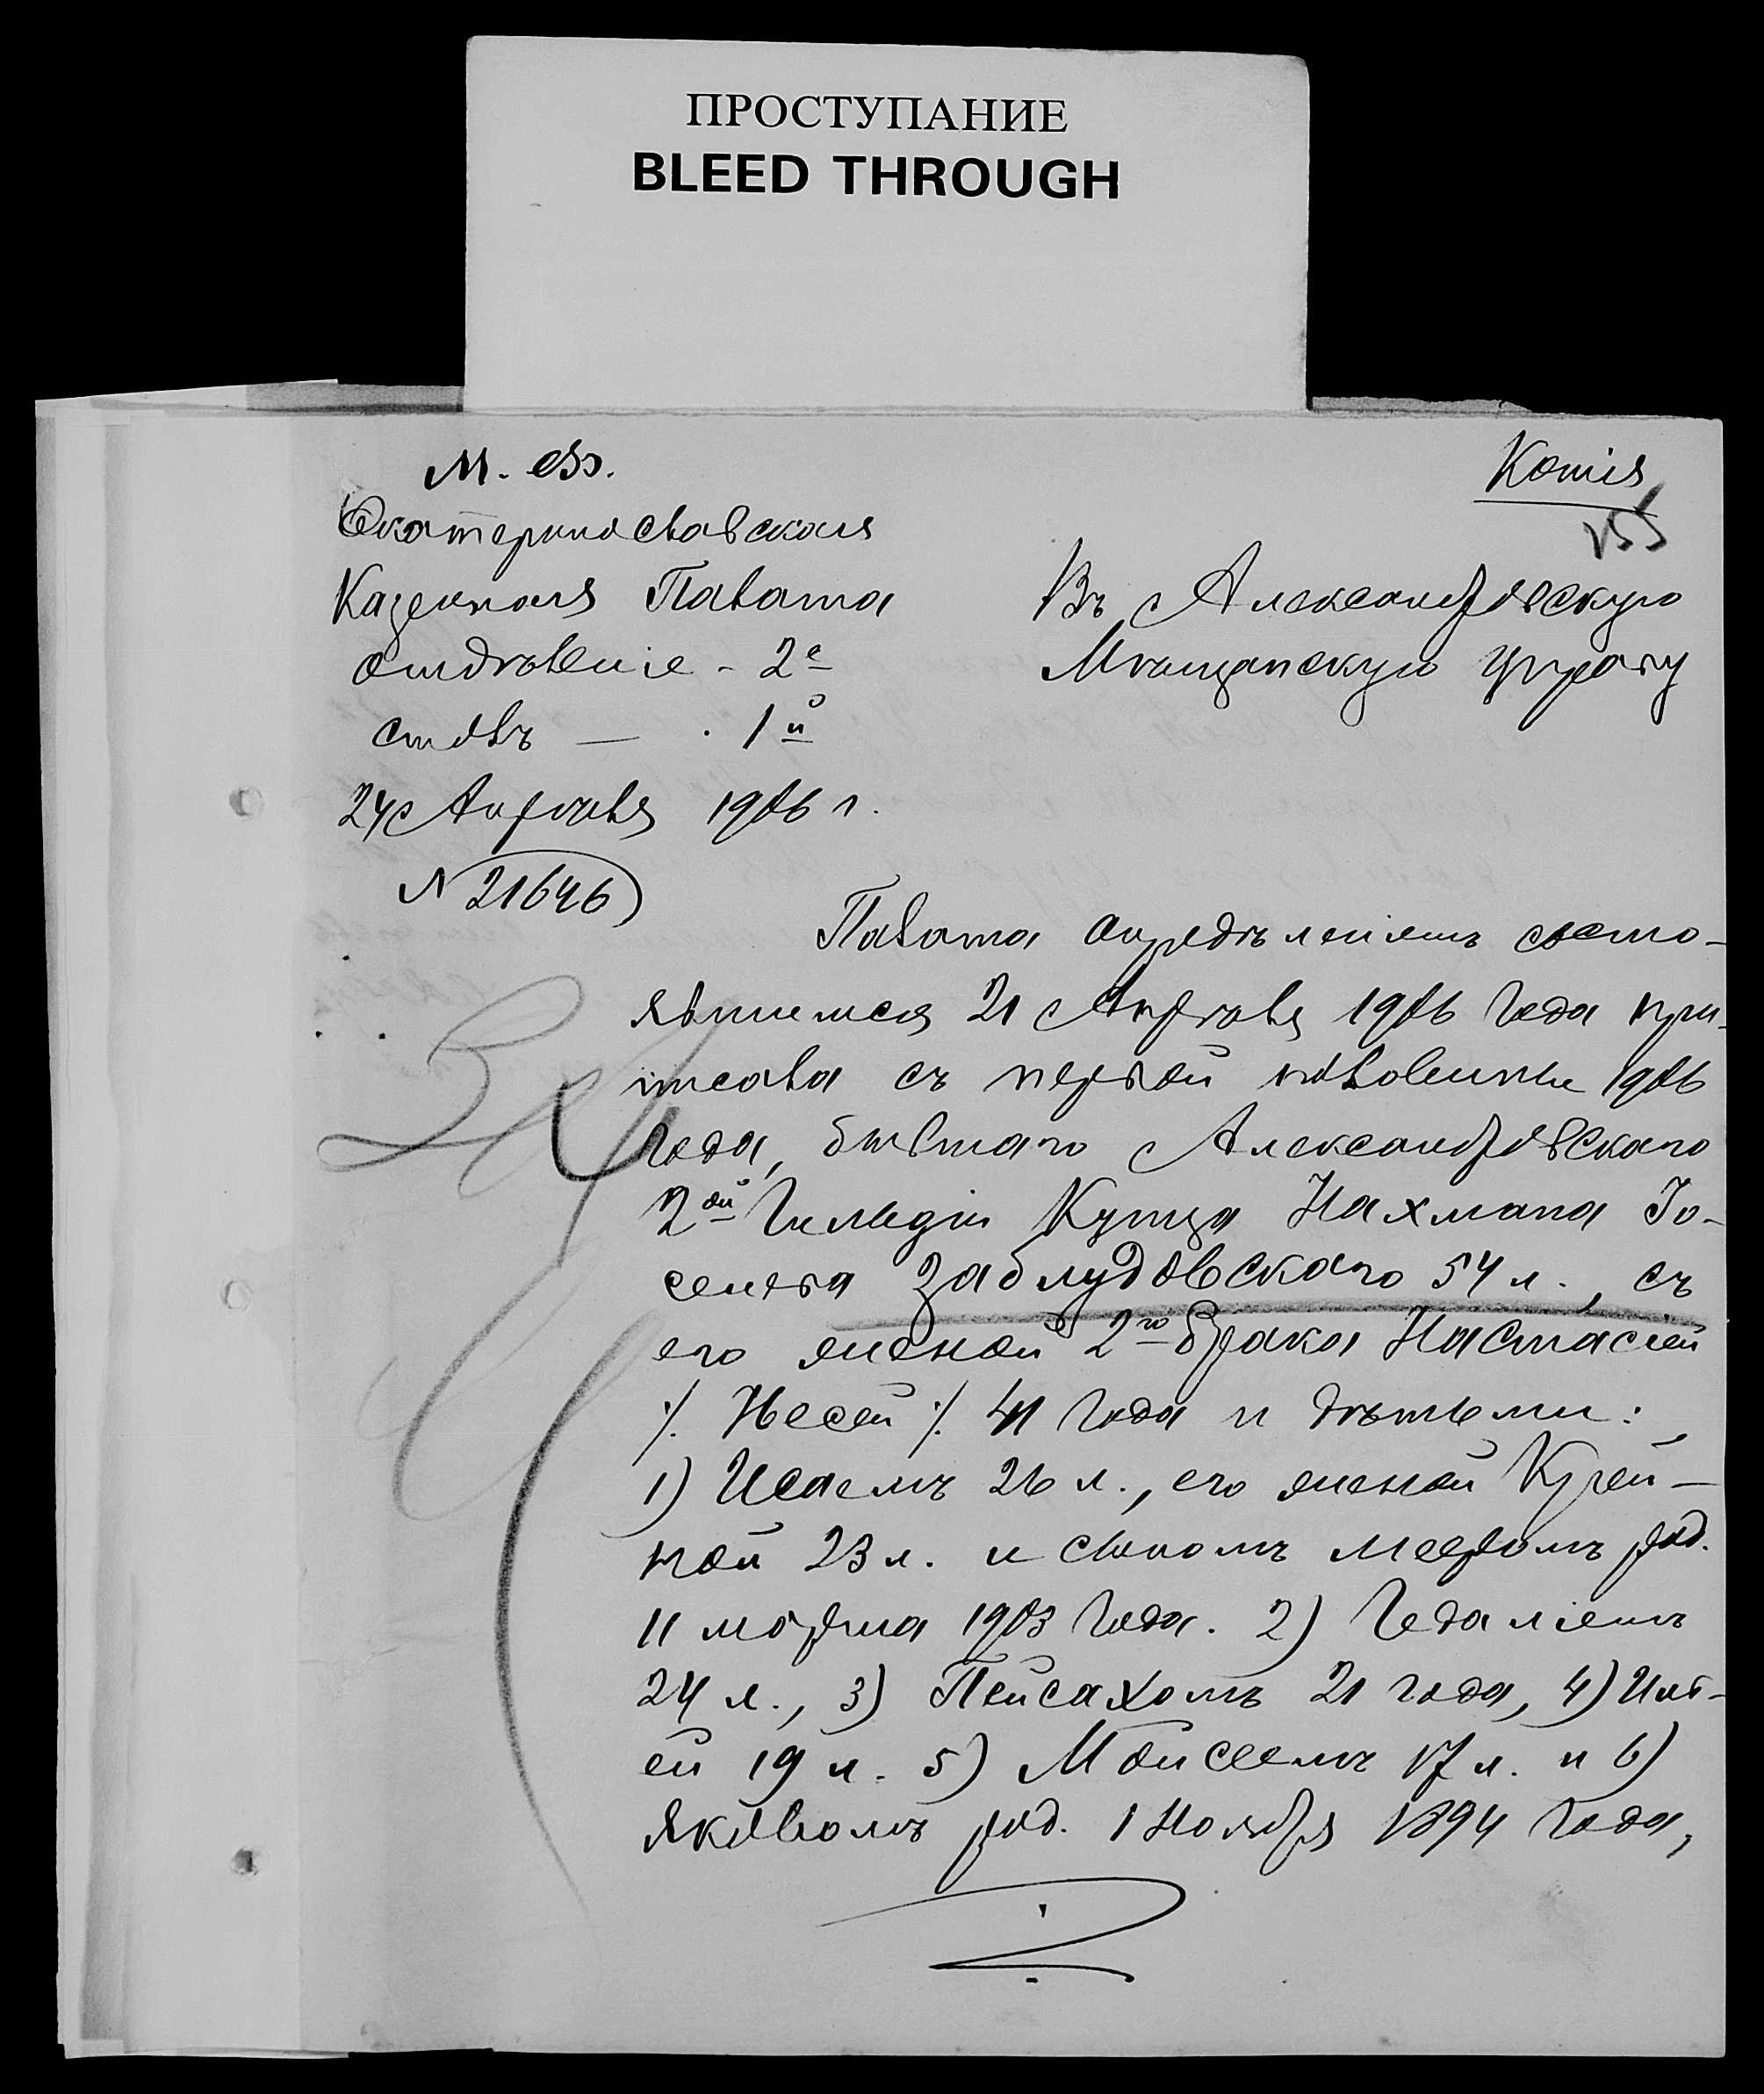 ПРОСТУПАНИЕ
BLEED THROUGH
М. Ф.
Копія
155
Екатеринославская
Казенная Палата
отдѣленіе - 2е
столъ — 1й
24 Апрѣля 1906 г.
N 21646
Въ Александровскую
Мѣщанскую Управу
Палата опредѣленіемъ состо-
явшимся 21 Апрѣля 1906 года при-
писала съ первой половины 1906
года, бывшаго Александровскаго
2ой Гильдіи Купца Нахмана Іо-
селева Заблудовскаго 54 л., съ
его женой 2го брака Настасіей
/. Несей /. 41 года и дѣтьми:
1) Исаемъ 26 л., его женой Крей-
ной 23 л. и сыномъ Мееромъ род.
11 марта 1903 года. 2) Гедаліемъ
24 л., 3) Пейсахомъ 21 года, 4)
ей 19 л. 5) Мойсеемъ 17 л. и 6)
Яковомъ род. 1 Ноября 1894 года,